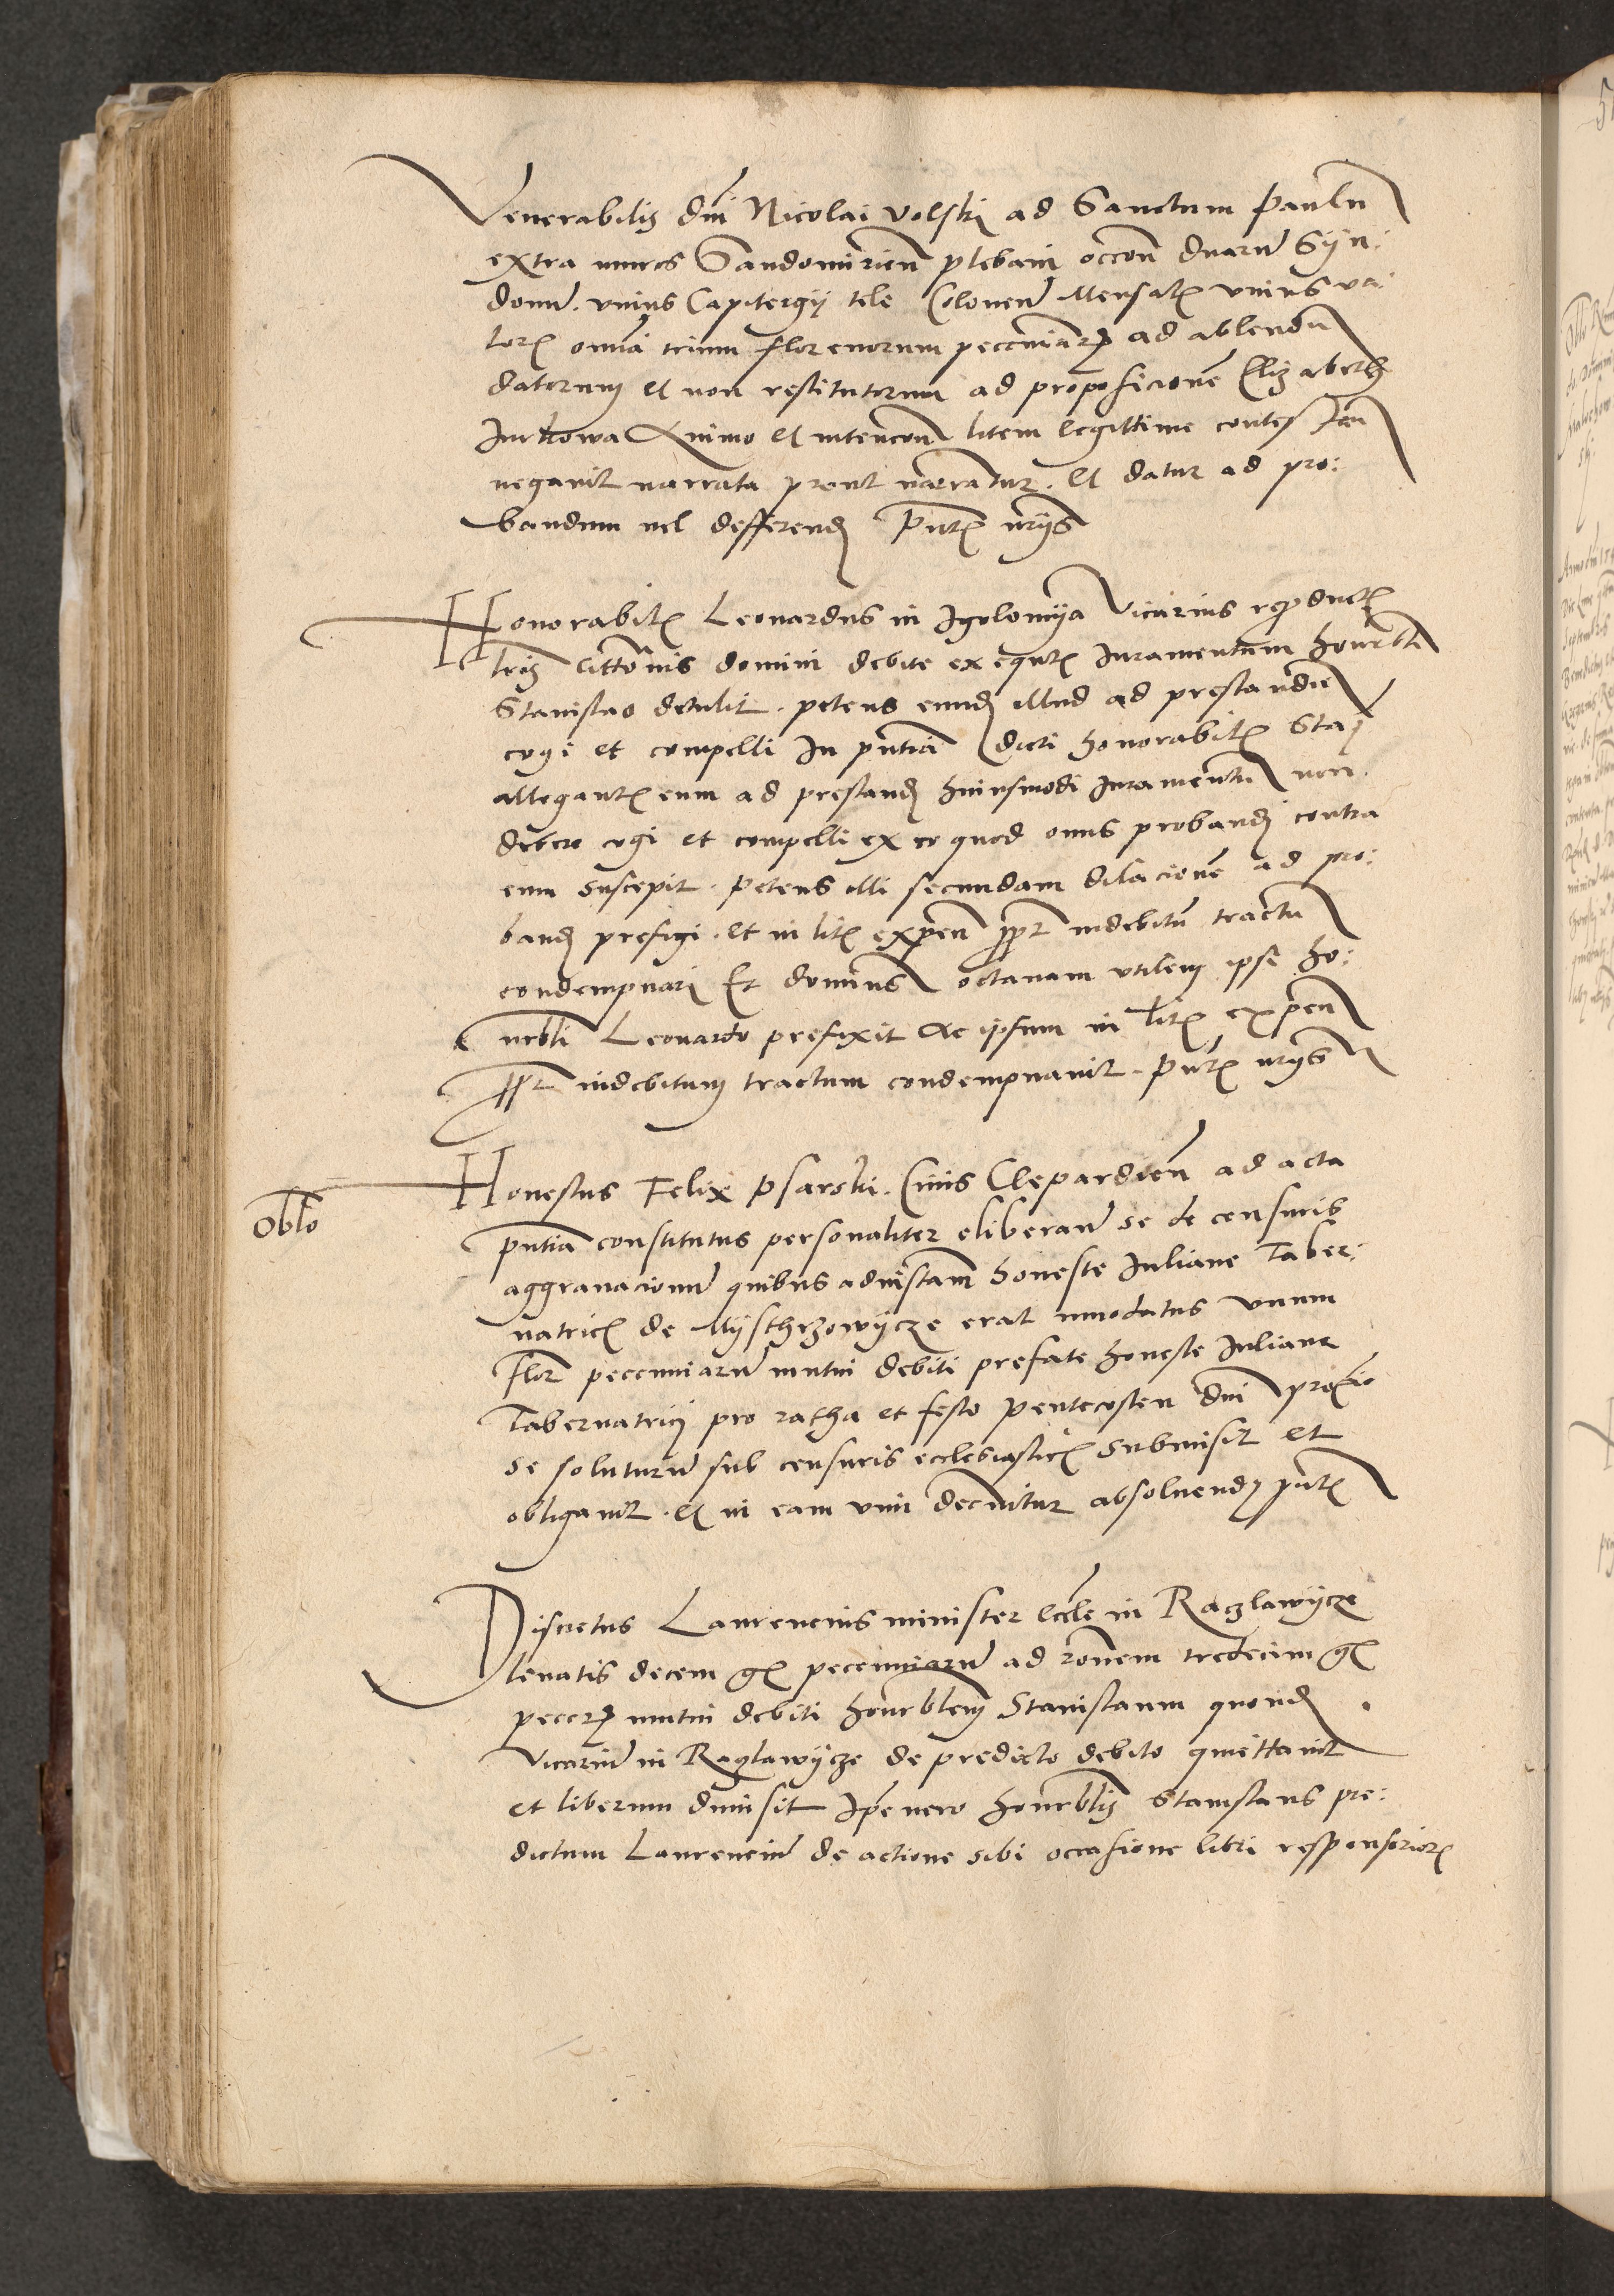 Venerabilis dni Nicolai Volski ad Sanctum Paulu
extra muros Sandomirien plebani occon duaru Syn:
donu. vnius Capitergij tele Colonen Mensat vnius va:
loris omnia trium florenorum pecuniar ad abluendu
datorum et non restitutorum ad proposicione Elizabeth
Jurkowa Animo et intencon litem legittime contestan
negavit narrata prout narrantur. et datur ad pro:
bandum vel defferend Pntibus vrijs
Honorabilis Leonardus in Igolomija Vicarius reproductis
lris cittonis domini debite exequtis Iuramentum honrbli
Stanislao detulit. petens eund illud ad prestandu
cogi et compelli In pntia dicti honorabilis Staj
allegantis eum ad prestand huiusmodi Iuramentu non
debere cogi et compelli ex eo quod onus proband contra
eum suscepit. petens illi secundam dilacione ad pro:
band prefigi. et in litis expen ppt indebitu tractu
condempnari Et dominus octauam vtilem ipsi ho:
nrbli Leonardo prefixit Ac ipsum in litis expen
ppt indebitum tractum condempnauit. pntibus vrijs
Oblo
Honestus Felix Psarski. Ciuis Clepardien ad acta
pntia constitutus personaliter eliberan se de censuris
aggrauacionu quibus ad instam honeste Juliane Taber:
natricis de Mysthrzowycze erat innodatus vnum
flor pecuniaru mutui debiti prefate honeste Juliane
Tabernatrici pro ratha et festo Pentecosten dni proxio
se soluturu sub censuris ecclesiasticis submisit et
obligauit. et in eam vim decernitur absoluend pntibus
Discretus Laurencius minister eccle in Raczlawycze
leuatis decem gs pecuniaru ad ronem tredecim gs
pecor mutui debiti honrblem Stanislaum quond
vicariu in Raczlawycze de predicto debito quiettauit
et liberum dimisit Ipe vero honrblis Stanislaus pre:
dictum Laurenciu de actione sibi occasione libri responsorior